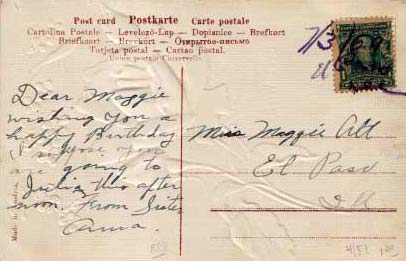 Post card Postkarte Carte postale
Cartolina Postale – Levelező-Lap – Dopisnice – Brefkort
Briefkaart – Brevkort – Открытое письмо
Tarjeta postal – Cartao postal.
Union postale Universelle.
Dear Maggie
wishing you a
happy Birthday
I suppose you
are going to
Julia this after
noon. From Sister
Anna.
Miss Maggie Alt
El Paso
Ill
Made in